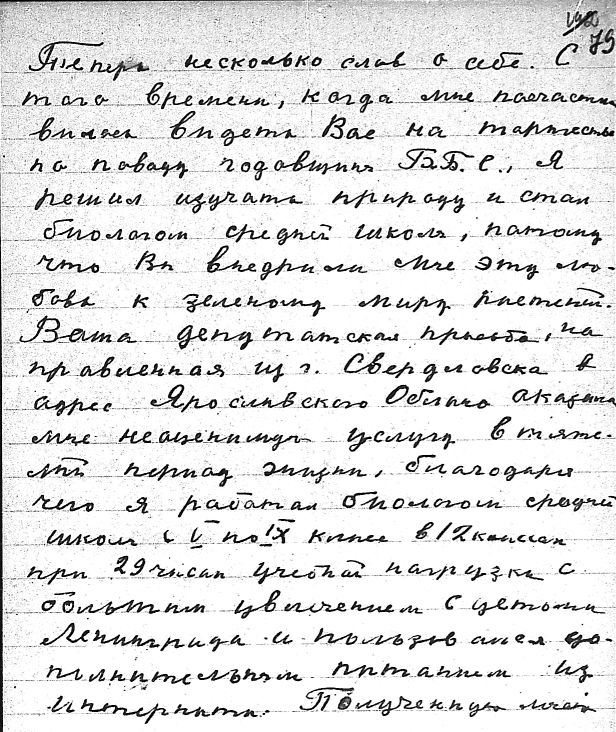 79
Теперь несколько слов о себе. С
того времени, когда мне посчастли
вилось видеть Вас на торжестве
по поводу годовщины Б.Б.С., я
решил изучать природу и стал
биологом средней школы, потому
что Вы внедрили мне эту лю-
бовь к зеленому миру растений.
Ваша депутатская просьба, на
правленная из г. Свердловска в
адрес Ярославского Облоно оказала
мне неоценимую услугу в тяже-
лый период жизни, благодаря
чего я работал биологом средней
школы с V по IX класс в 12 классах
при 29 часах учебной нагрузки с
большим увлечением с детьми
Ленинграда и пользовался до-
полнительным питанием из
интерната. Полученную мною